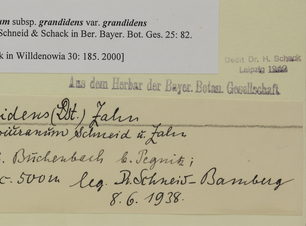 um subsp. grandidens var. grandidens
Schneid & Schack in Ber. Bayer. Bot. Ges. 25: 82.
k in Willdenowia 30: 185. 2000]
Dedit Dr. H. Schack
Leipzig
Aus dem Herbar der Bayer. Botan. Gesellschaft
idens (Dst.) Zahn
Schneid u. Zahn
Büchenbach b. Pegnitz;
c. 500m leg. Th. Schneid-Bamberg
8.6.1938.